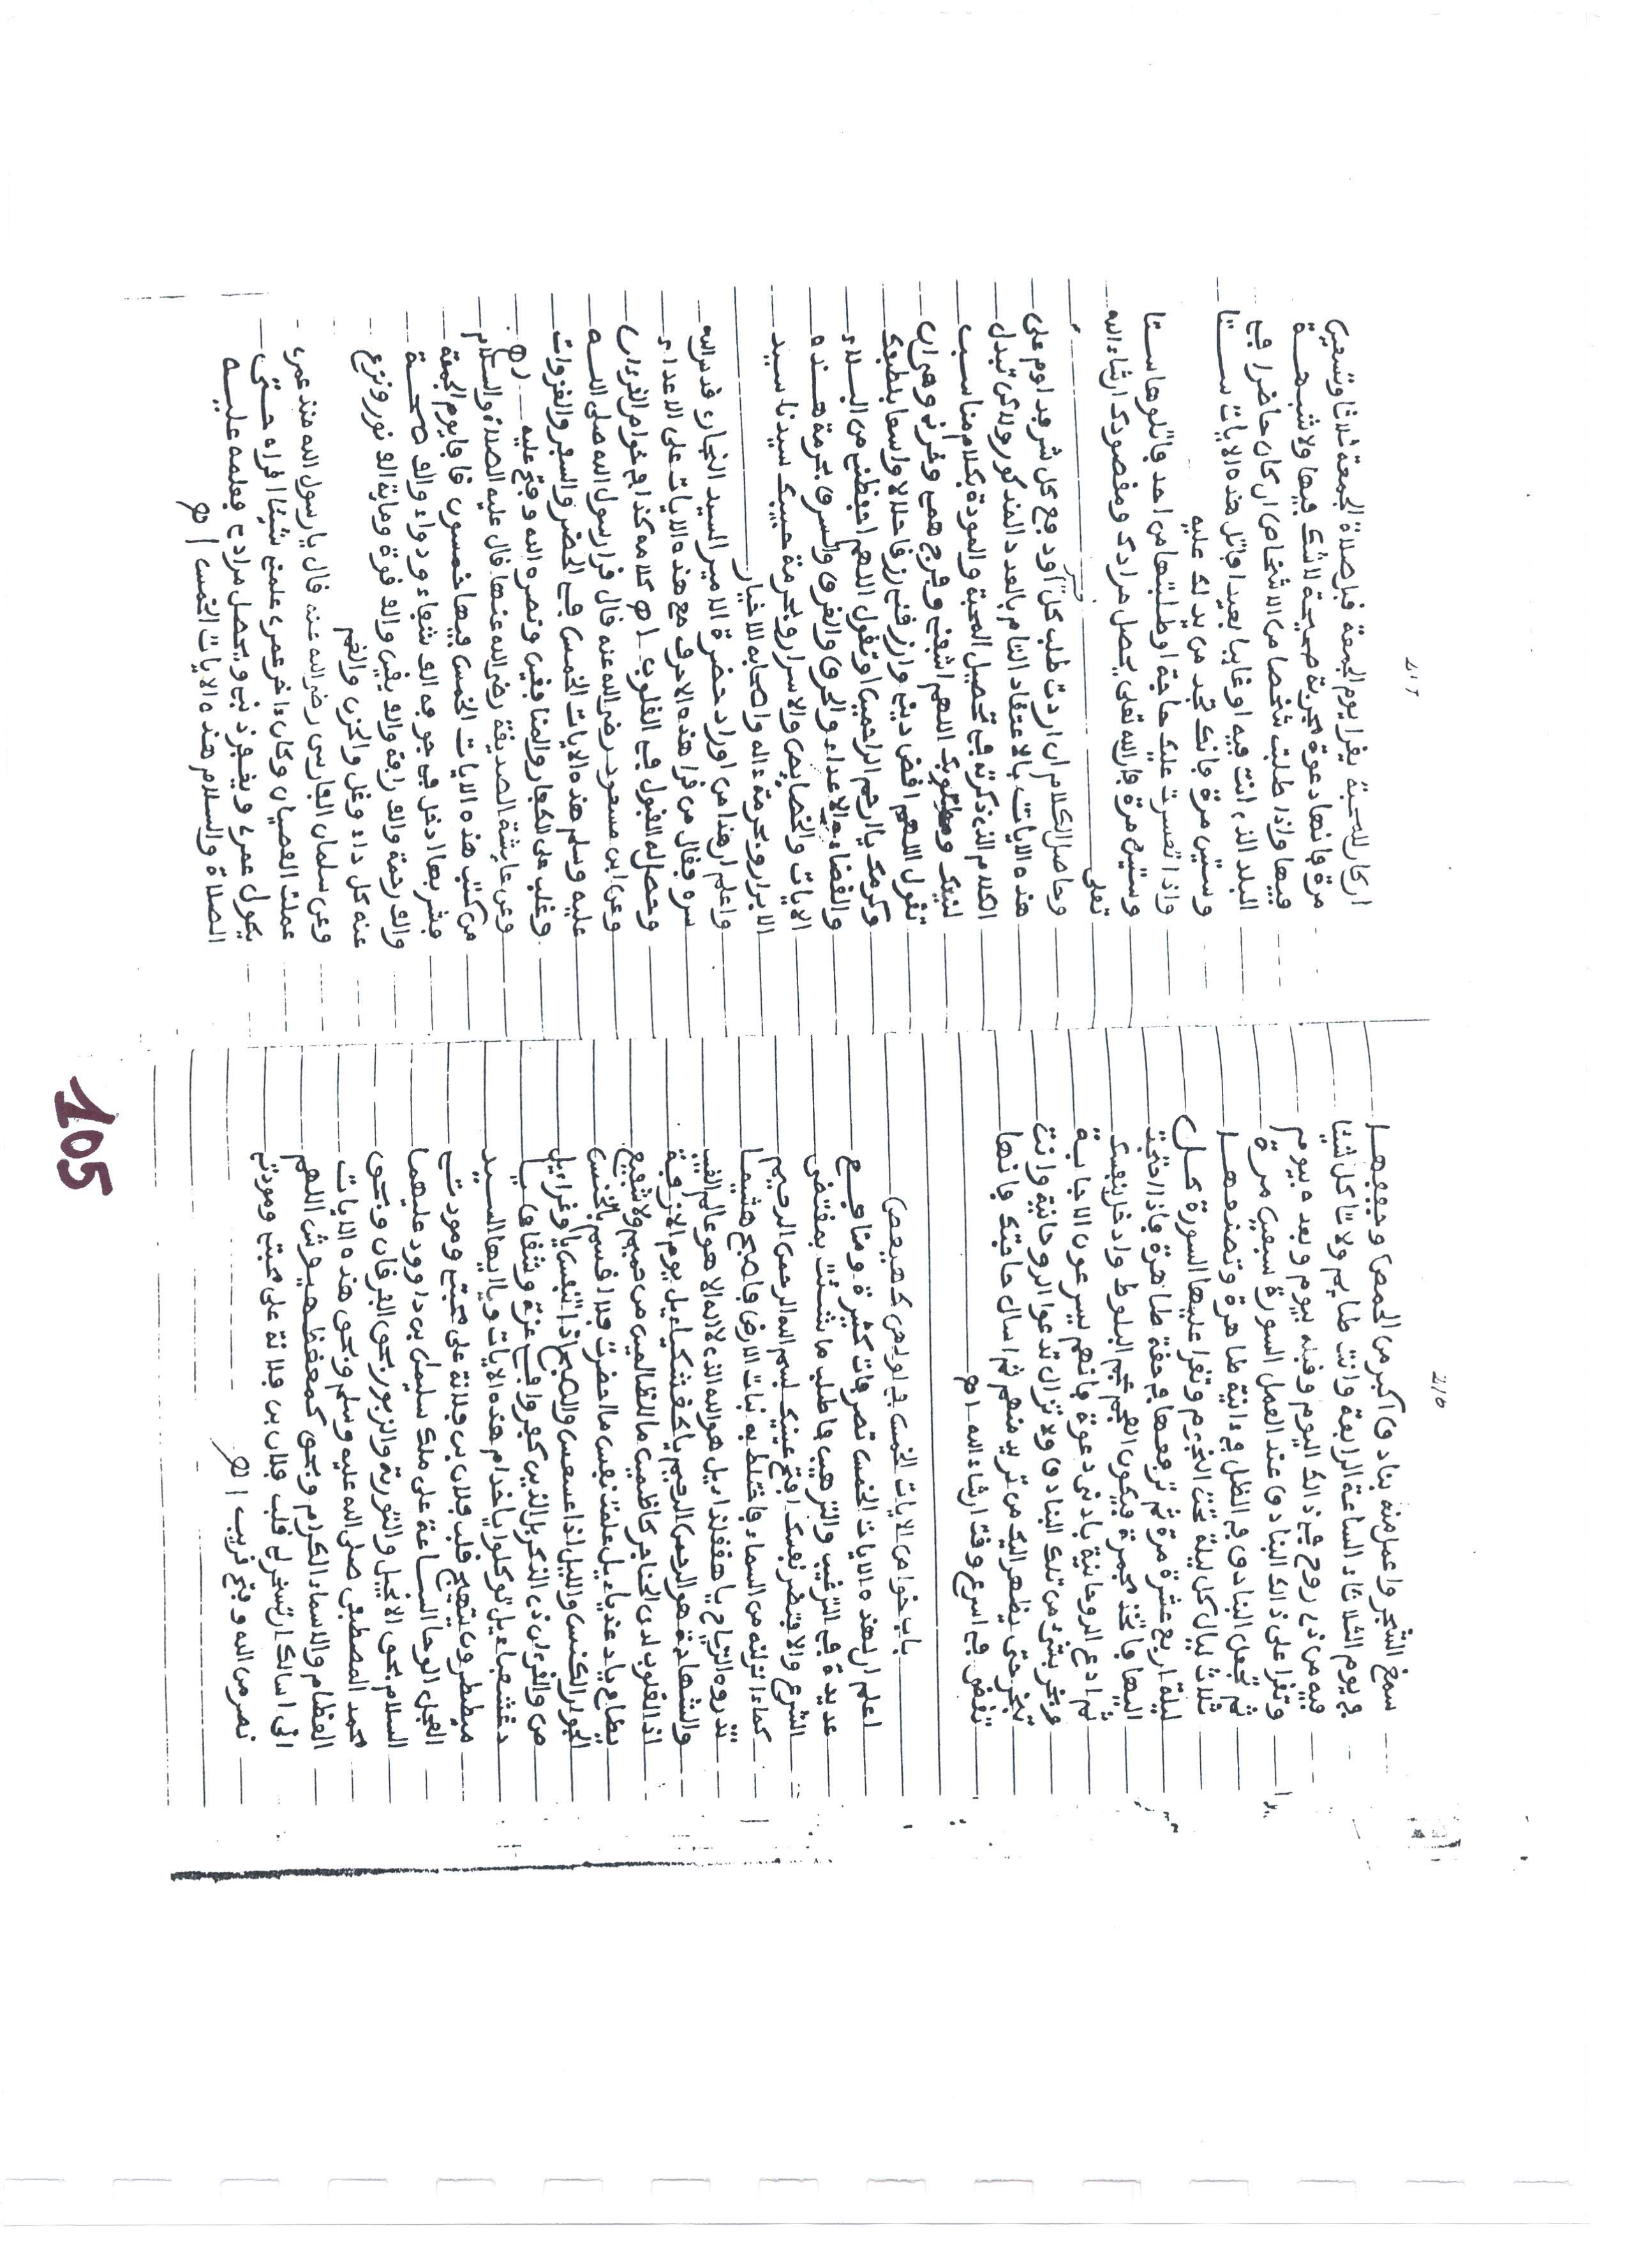 سمغ الشجر واعمل منه بنادق اكبر من الحمص وجففها
في يوم الثلاثاء الساعة الرابعة وانت صايم ولا تاكل شيئا
فيه من ذي روح في ذالك اليوم وقبله بيوم وبعده بيوم
وتقرا على ذالك البنادق عند العمل السورة سبعين مرة
ثم تجعل البنادق في الظل في ءانية طاهرة وتصنعها
ثلاث ليال كل ليلة تحت النجوم وتقرا عليها السورة كل
ليلة اربع عشرة مرة ثم ترفعها في حقة طاهرة فاذا احتجت
اليها فاتخذ مجمرة فيكون الفحم شجر البلوط وادخل بنفسك
ثم ادع الروحانية بادنى دعوة فانهم يسرعون الاجابة
وبخر بشيء من تلك البنادق ولا تزال تدعوا الروحانية وانت
تبخر حتى يظهر اليك من تريد منهم ثم اسال حاجتك فانها
تقضى في اسرع وقت ان شاء الله اهـ
باب خواص الايات الخمس في اولهن كهيعص
اعلم ان لهذه الايات الخمس تصرفات كثيرة ومنافع
عديدة في الترغيب والترهيب فاطلب ما شئت بمقتضى
الشرع والا فتضر نفسك افتح عينيك بسم الله الرحمن الرحيم
كماء انزلنه من السماء فاختلط به نبات الارض فاصبح هشيما
تذروه الرياح هو الله الذي لا اله الا هو عالم الغيب
والشهادة هو الرحمن الرحيم يوم الازفة
اذ القلوب لدى الحناجر كاظمين ما للظالمين من حميم ولا شفيع
يطاع علمت نفس ما احضرت فلا اقسم بالخنس
الجوار الكنس والليل اذا عسعس والصبح اذا تنفس
ص والقرءان ذي الذكر بل الذين كفروا في عزة وشقاق
توكلوا يا خدام هذه الايات ويا ايها السيد
ميططرون بتهيج قلب فلان بن فلانة على محبتي ومودتي
العجل الوحا الساعة على ملك سليمن بن داوود عليهما
السلام بحق الانجيل والتورية والزبور بحق الفرقان وبحق
محمد المصطفى صلى الله عليه وسلم وبحق هذه الايات
العظام والاسماء الكرام وبحق اللهم
اني اسالك ان تسخر لي قلب فلان بن فلانة على محبتي ومودتي
نصر من الله وفتح قريب اهـ
216
اركان للمحبة يقرا يوم الجمعة قبل صلاة الجمعة ثلاثا وتسعين
مرة فانها دعوة مجربة صحيحة لا شك فيها ولا شبهة
فيها واذا طلبت شخصا من الاشخاص ان كان حاضرا في
البلد الذي انت فيه او غايبا بعيدا فاتل هذه الايات ستا
وستين مرة فانك تجد من يدلك عليه
واذا تعسرت عليك حاجة او طلبتها من احد فاتلوها ستا
وستين مرة فان الله تعلى يحصل مرادك ومقصودك ان شاء الله
تعلى
وحاصل الكلام ان اردت طلب كل او دفع كل شر فداوم على
هذه الايات بالاعتقاد التام بالعدد المذكور ولاكن تبدل
الكلام الذي ذكرته في تحصيل المحبة والمودة بكلام مناسب
لنيتك ومطلوبك اللهم اشفني وفرج همي وغمي او
تقول اللهم اقض ديني وارزقني رزقا حلالا واسعا بلطفك
وكرمك يا ارحم الراحمين او تقول اللهم احفظني من البلاء
والقضاء والاعداء والحرق والغرق والسرق بحرمة هذه
الايات والخصايص والاسرار وبحرمة حبيبك سيدنا سيد
الابرار وبحرمة ءاله واصحابه الاخيار
واعلم ان هذا من اوراد حضرة الامير السيد البخاري قدس الله
سره فقال من قرا هذه الاحرف مع هذه الايات على الاعداء
وحصل له القبول في القلوب اهـ كلامه كذا في خواص القرءان
وعن ابن مسعود رضي الله عنه قال قرا رسول الله صلى الله
عليه وسلم هذه الايات الخمس في الحضر والسفر والغزوات
وغلب على الكفار والمنافقين ونصره الله وفتح عليه اهـ
وعن عايشة الصديقة رضي الله عنها قال عليه الصلاة والسلام
من كتب هذه الايات الخمس فيها خمسون قافا يوم الجمعة
فشربها دخل في جوفه الف شفاء ودواء والف صحة
والف رحمة والف رافة والف يقين والف قوة وماية الف نور ونزع
عنه كل داء وغل والحزن والغم
وعن سلمان الفارسي رضي الله عنه قال يا رسول الله منذ عمري
عملت العصيان وكان ءاخر عمري علمني شيئا اقراه حتى
يكون عمري ويغفر ذنبي ويحصل مرادي فعلمه عليه
الصلاة والسلام هذه الايات الخمس اهـ
217
105